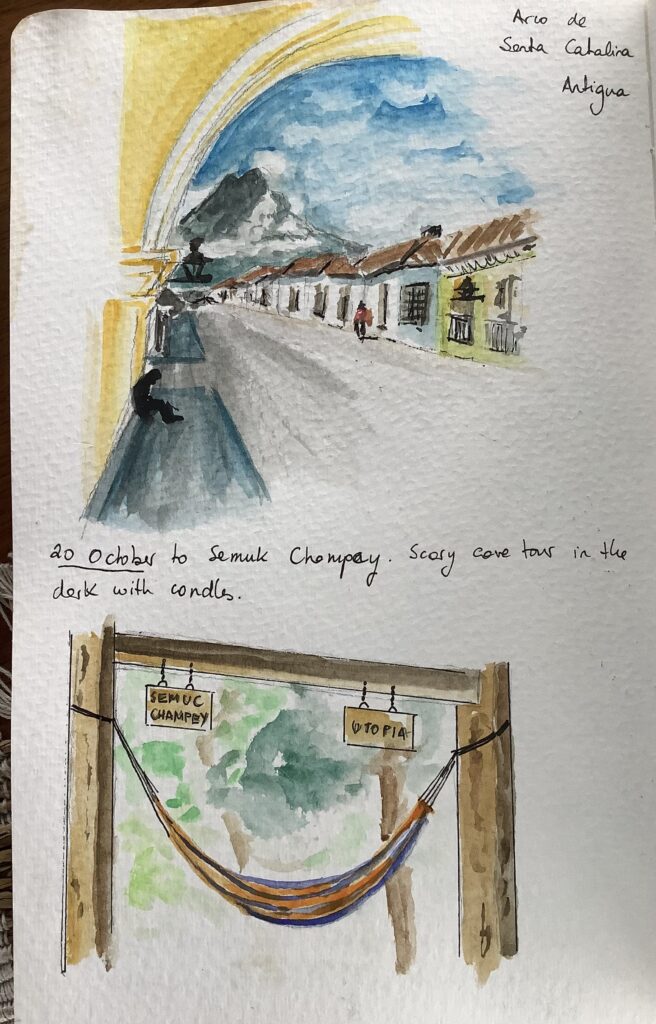 Arco de
Santa Catalina
Antigua
20 October to Semuk Champey. Scary cave tour in the
dark with candles.
SEMUC
CHAMPEY
UTOPIA